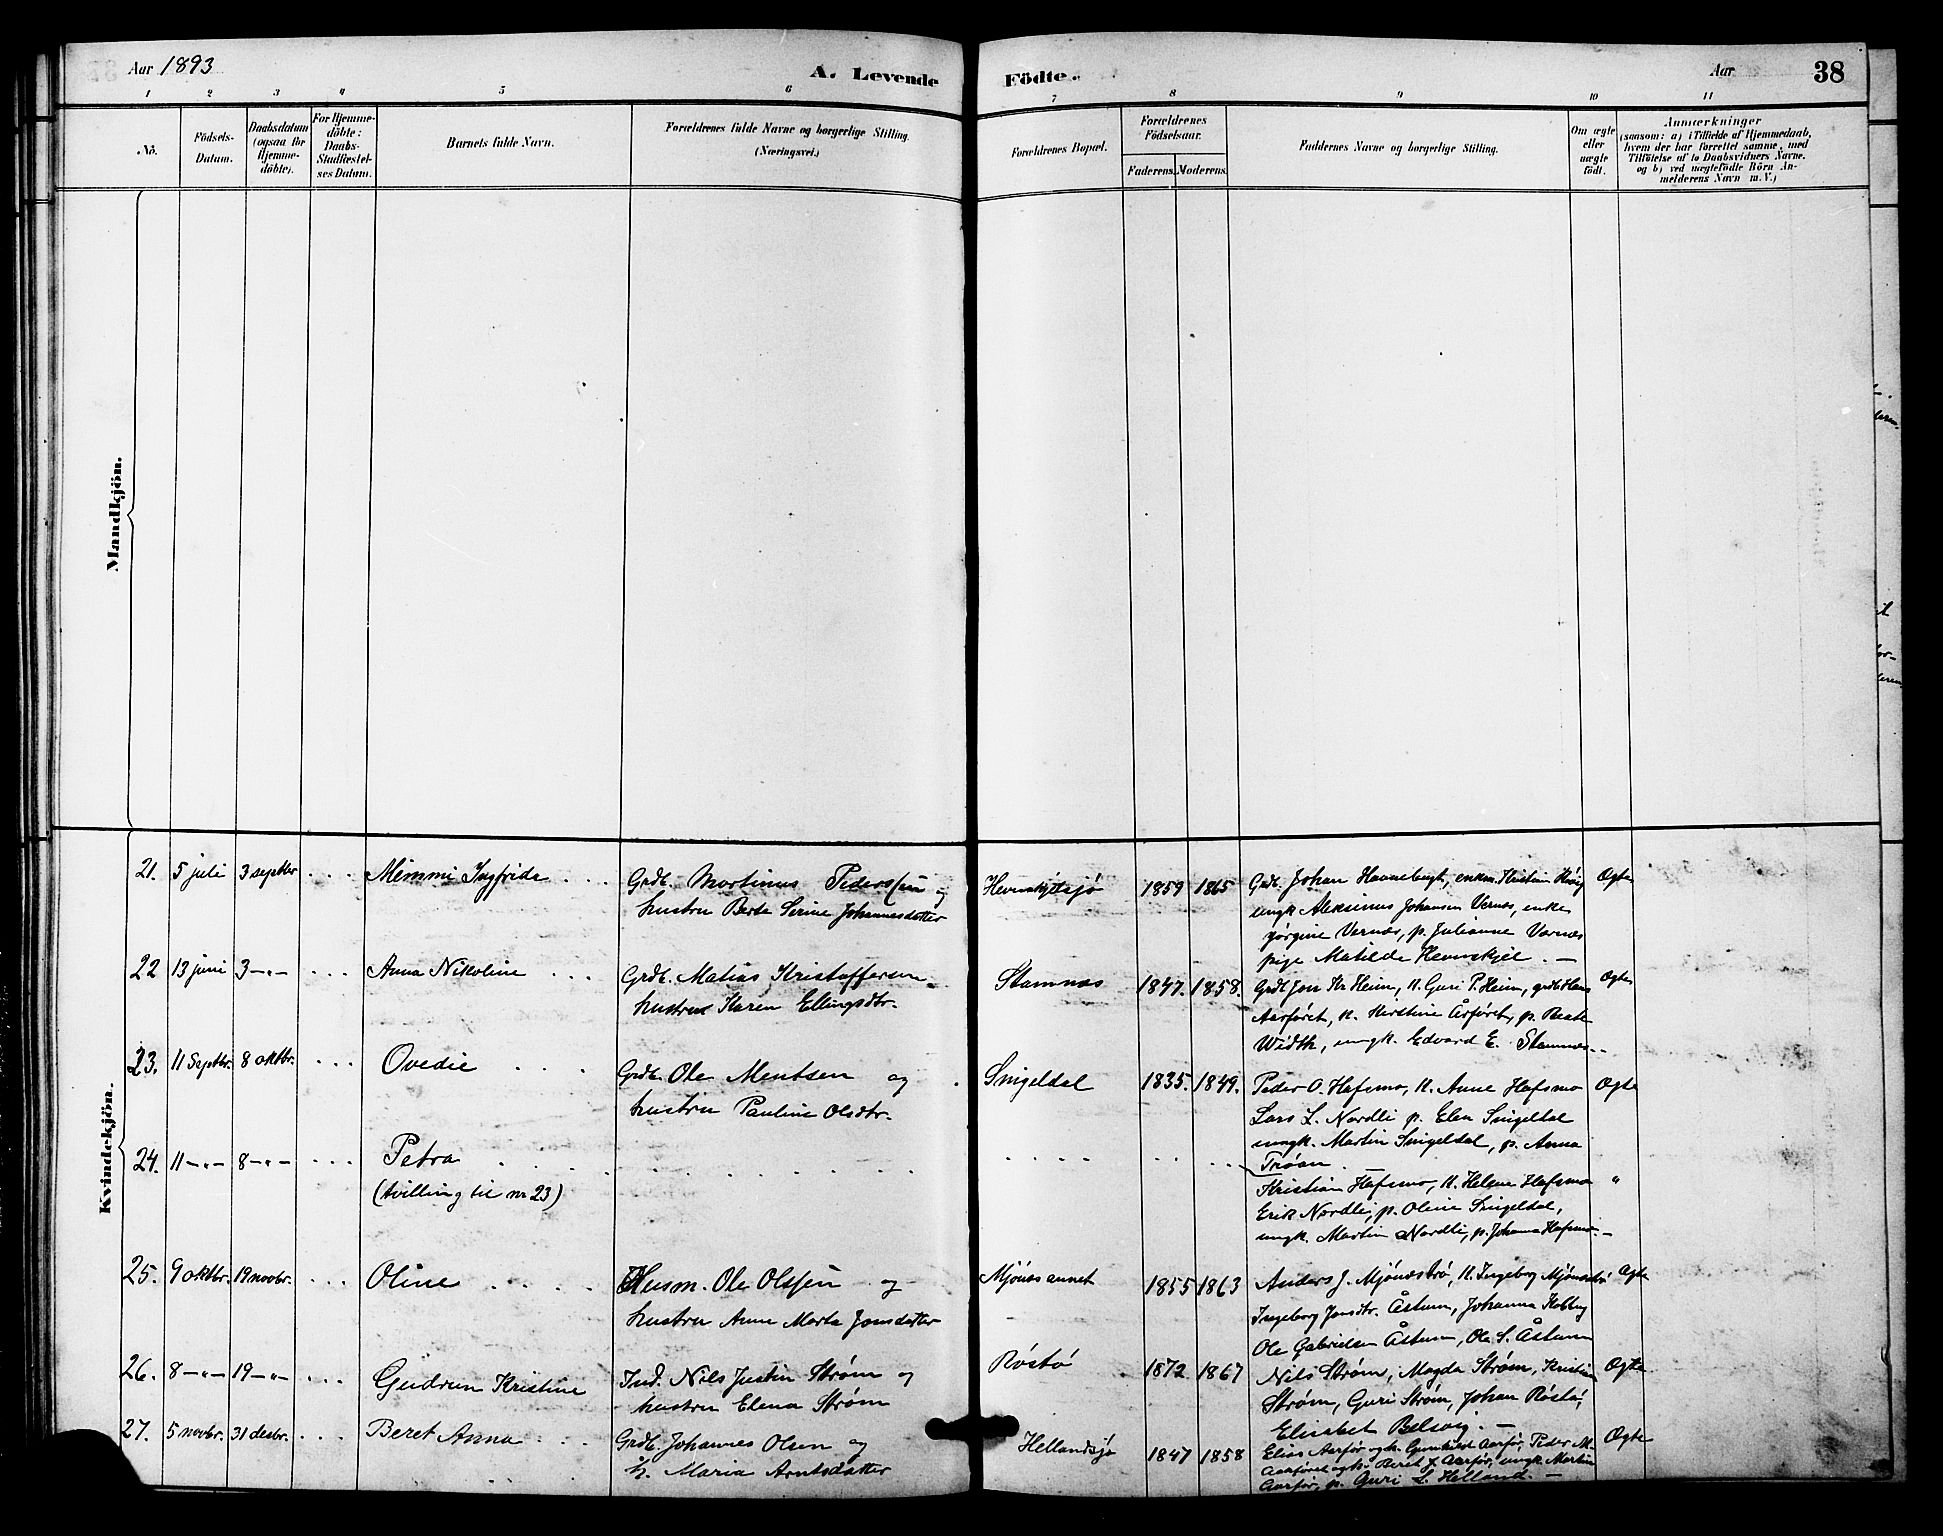 Aar 1893
A. Levende
Födte.
Aar
38
1 2 3 4 5 6 7 8 9 10 11
No.
Födsels-
Datum.
Daabsdatum
(ogsaa for
Hjemme-
döbte).
For Hjemme-
döbte:
Daabs-
Stadfæstel-
ses Datum.
Barnets fulde Navn.
Forældrenes fulde Navne og borgerlige Stilling.
(Næringsvei.)
Forældrenes Bopæl.
Forældrenes
Födselsaar.
Faderens. Moderens.
Faddernes Navne og borgerlige Stilling.
Om ægte
eller
uægte
födt.
Anmærkninger
(saasom: a) i Tilfælde af Hjemmedaab,
hvem der har forrettet samme, med
Tilföielse af to Daabsvidners Navne.
og b) ved uægtefödte Börn An-
melderens Navn m. V.)
Mandkjön.
Kvindekjön.
21. 5 juli 3 septbr Mimmi Ingfride Grdb. Martinus Pederssen og
hustru Berte Serine Johannesdatter
Hevnskjelsjø 1859 1865 Grdb. Johan Havnebugt, enkm. Kristian
ungk Aleksinus Johansen Vernes, enke
Jørgine Vernæs, p. Julianne Vernæs
pige Matilde Hevnskjel. —
Ægte
22 13 juni 3 —"— Anna Nikoline Grdb. Matias Kristoffersen
hustru Karen Ellingsdtr.
Stamnes 1847. 1858. Grdb Jon Kr Heim, k. Guri P. Heim, grdb Hans
Aarføret, k. Kirstine Årføret, p. Beate
Width, ungk. Edvard E. Stamnes.
Ægte
23. 11 Septbr. 8 oktbr. Ovedie Grdb. Ole Mentsen og
hustru Pauline Olsdtr.
Snigeldal 1835. 1849. Peder O. Hafsmo, k. Anne Hafsmo
Lars L. Nordli p. Elen Snigeldal
ungk. Martin Snigeldal, p. Anna
Trøan.
Ægte
24. 11 —"— 8 —"— Petra
(tvilling til nr 23)
Kristian Hafsmo, k. Helene Hafsmo "
Erik Nordli, p. Oline Snigeldal,
ungk. Martin Nordli, p. Johanna Hafsmo. —
25. 9 oktbr. 19 novbr. Oline Husm. Ole Olssen og
hustru Anne Marta Jonsdatter
Mjønesannet 1855 1863 Anders J. Mjønestrø, k. Ingeborg
Ingeborg Jonsdtr. Åstum, Johanna
Ole Gabrielsen Åstum, Ole S. Åstum
Ægte
26. 8 —"— 19 —"— Gudrun Kristine Ind. Nils Justin Strøm og
hustru Elena Strøm
Røstø 1872 1867 Nils Strøm, Magda Strøm, Kristian
Strøm, Guri Strøm, Johan Røstø,
Elisabet Belsvig. —
Ægte
27. 5 novbr. 31 desbr. Beret Anna Grdb. Johannes Olsen og
h. Maria Arntsdatter
Hellandsjø 1847 1858 Elias Aarfør og k. Gunhild Aarfør, Peder M.
Aarføret og k. Beret J. Aarfør, ungk. Martin
Aarfør, p. Guri L. Helland. —
Ægte